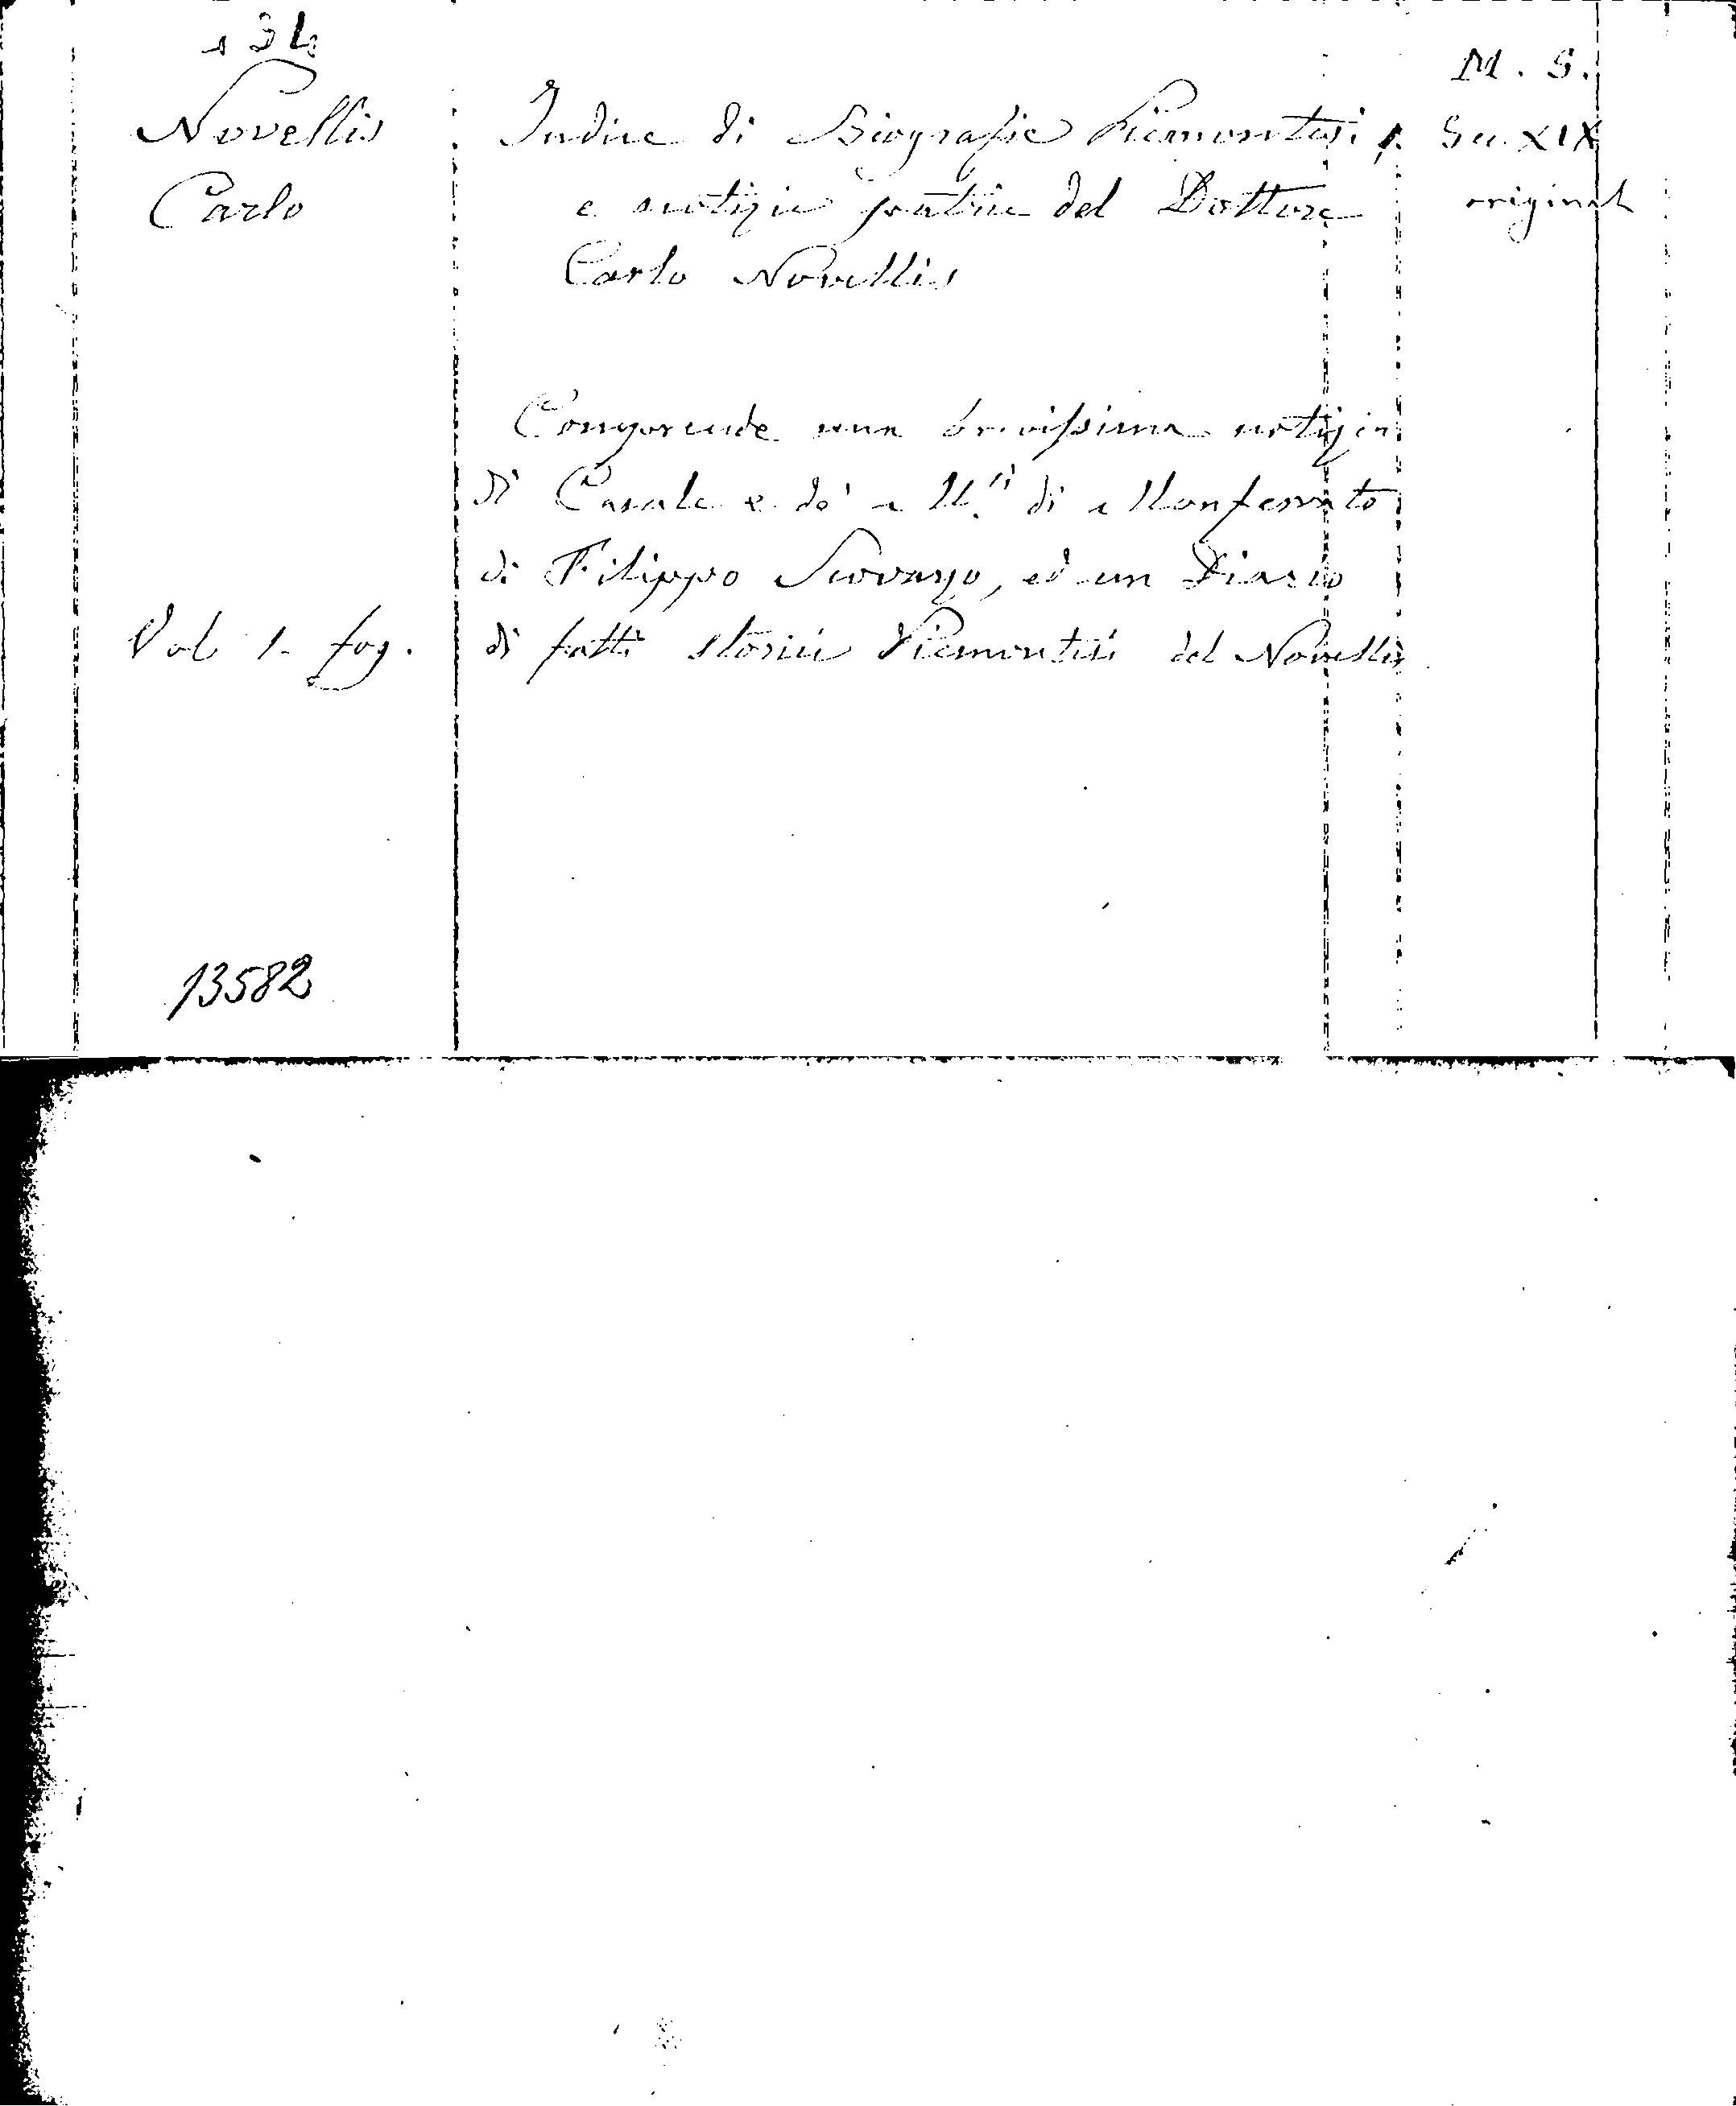 134
M. S.
Novellis
Carlo
Indice di Biografie Piemontesi,
e notizie patrie del Dottore
Carlo Novellis
Sec. XIX
original
Comprende una brevissima notizia
di Casale e de' di Monferrato
di Filippo ed un Diario
di fatti storici Piemontesi del Novellis
Vol 1. fog.
13582